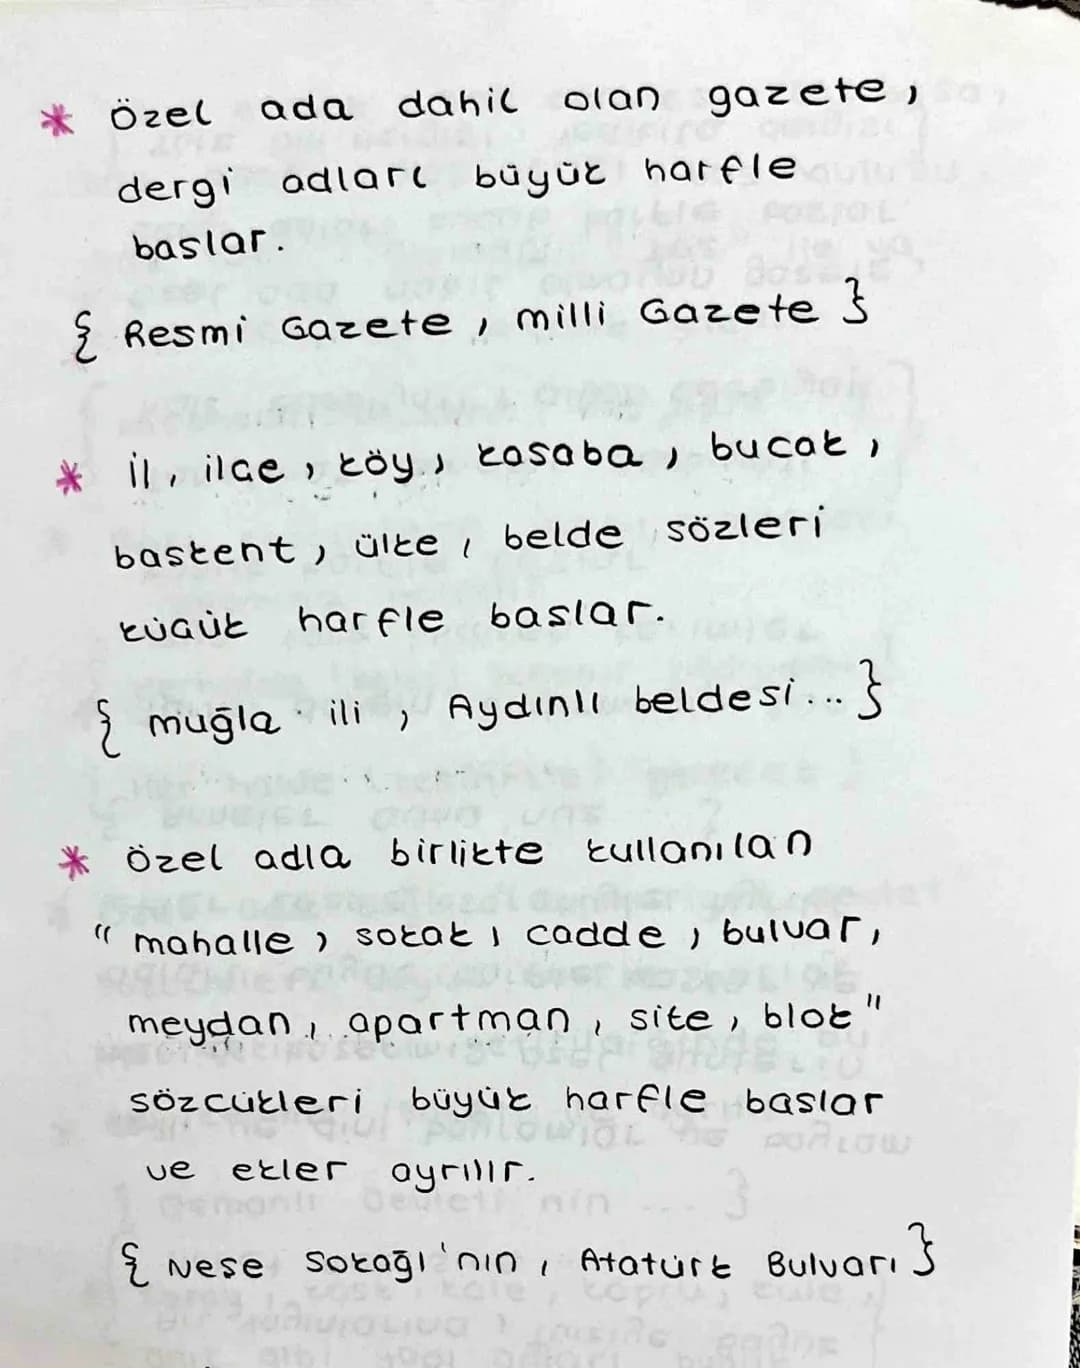 * Özel ada dahil olan gazete,
dergi adları büyük harfle
baslar.
{ Resmi Gazete, milli Gazete }
* il, ilçe, köy, kasaba, bucak,
baskent, ülke, belde sözleri
küçük harfle baslar.
{ muğla ili, Aydınlı beldesi... }
* Özel adla birlikte kullanılan
" mahalle, sokak, cadde, bulvar,
meydan, apartman, site, blok"
sözcükleri büyük harfle baslar
ve ekler ayrılır.
{ Neşe Sokağı'nın, Atatürk Bulvarı }